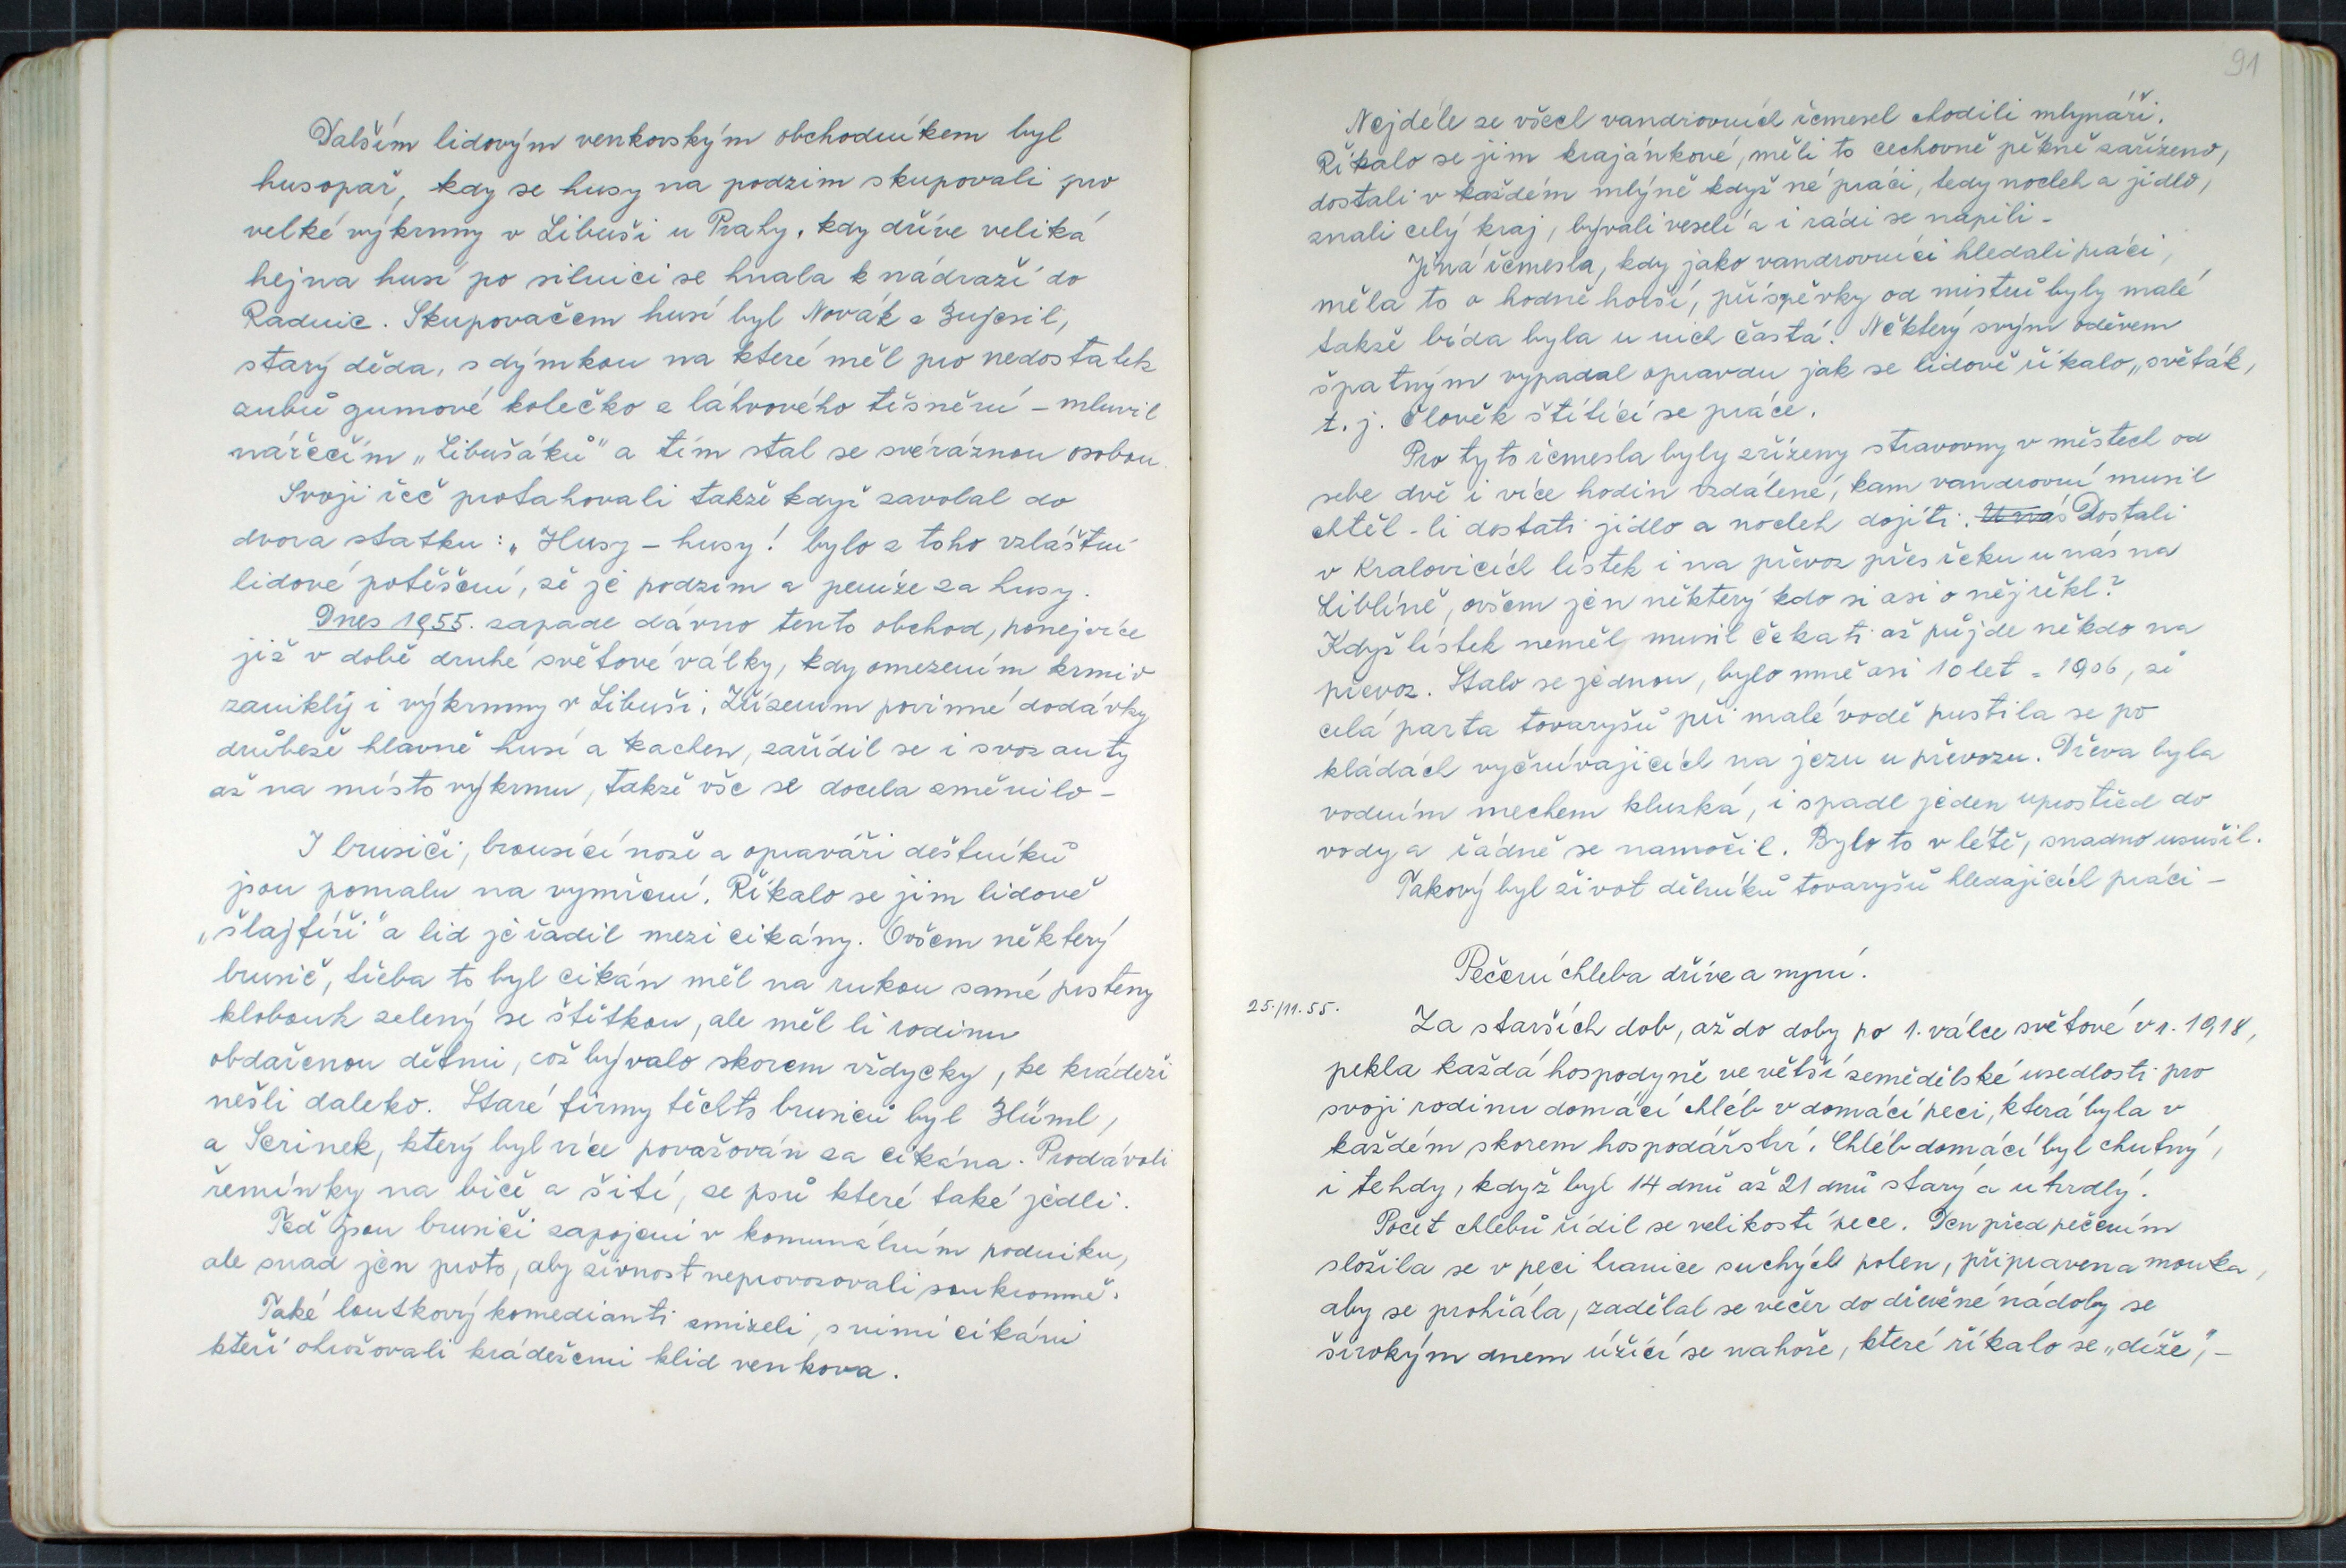 Dalším lidovým venkovským obchodníkem byl
husopař, kdy se husy na podzim skupovali pro
velké výkrmny v Libuši u Prahy. kdy dříve veliká
hejna husí po silnici se hnala k nádraží do
Radnic. Skupovačem husí byl Novák a
starý děda, s dýmkou na které měl pro nedostatek
zubů gumové kolečko z láhvového těsnění – mluvil
nářečím „Libušáků" a tím stal se svéráznou osobou.
Svoji řeč protahovali takže když zavolal do
dvora statku: „Husy – husy! bylo z toho vzláštní
lidové potěšení, že je podzim a peníze za husy.
Dnes 1955. zapadl dávno tento obchod, ponejvíce
již v době druhé světové války, kdy omezením krmiv
zanikly i výkrmny v Libuši. Zřízením povinné dodávky
drůbeže hlavně husí a kachen, zařídil se i svoz auty
až na místo výkrmu, takže vše se docela změnilo –
I brusiči, brousící nože a opraváři deštníků
jsou pomalu na vymření. Říkalo se jim lidově
„šlajfíři" a lid je řadil mezi cikány. Ovšem některý
brusič, třeba to byl cikán měl na rukou samé prsteny
klobouk zelený se štětkou, ale měl li rodinu
obdařenou dětmi, což bývalo skorem vždycky, ke krádeži
nešli daleko. Staré firmy těchto brusičů byl
a Serinek, který byl více považován za cikána. Prodávali
řemínky na biče a šití, ze psů které také jedli.
Teď jsou brusiči zapojeni v komunálním podniku,
ale snad jen proto, aby živnost neprovozovali soukromně.
Také loutkový komedianti zmizeli, s nimi cikáni
kteří ohrožovali krádežemi klid venkova.
91
Nejdéle ze všech vandrovních řemesel chodili mlynáři.
Říkalo se jim krajánkové, měli to cechovně pěkně zařízeno,
dostali v každém mlýně když né práci, tedy nocleh a jídlo,
znali celý kraj, bývali veselí a i rádi se napili –
Jiná řemesla, kdy jako vandrovníci hledali práci,
měla to o hodně horší, příspěvky od mistrů byly malé
takže bída byla u nich častá. Některý svým oděvem
špatným vypadal opravdu jak se lidově říkalo „světák,
t. j. člověk štítící se práce.
Pro tyto řemesla byly zřízeny stravovny v městech od
sebe dvě i více hodin vzdálené, kam vandrovní musil
chtěl-li dostati jídlo a nocleh dojíti. U nás Dostali
v Kralovicích lístek i na převoz přes řeku u nás na
Liblíně, ovšem jen některý kdo si asi o něj řekl?
Když lístek neměl, musil čekati až půjde někdo na
převoz. Stalo se jednou, bylo mně asi 10 let = 1906, že
celá parta tovaryšů při malé vodě pustila se po
kládách vyčnívajících na jezu u převozu. Dřeva byla
vodním mechem kluzká, i spadl jeden uprostřed do
vody a řádně se namočil. Bylo to v létě, snadno usušil.
Takový byl život dělníků tovaryšů hledajících práci –
Pečení chleba dříve a nyní.
25./11.55.
Za starších dob, až do doby po 1. válce světové v r. 1918,
pekla každá hospodyně ve větší zemědělské usedlosti pro
svoji rodinu domácí chléb v domácí peci, která byla v
každém skorem hospodářství. Chléb domácí byl chutný,
i tehdy, když byl 14 dnů až 21 dnů starý a utvrdlý.
Počet chlebů řídil se velikostí pece. Den před pečením
složila se v peci hranice suchých polen, připravena mouka,
aby se prohřála, zadělal se večer do dřevěné nádoby se
širokým dnem úžící se nahoře, které říkalo se „díže", –